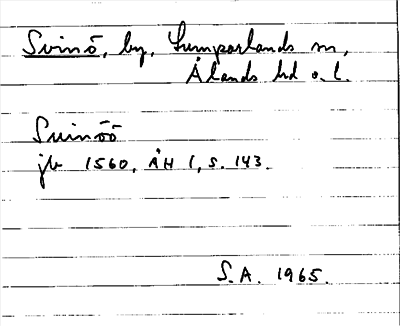 Svinö, by, Lumparlands sn,
Ålands hd o. l.
Suinöö
jb 1560, ÅH 1, s. 143.
S.A. 1965.